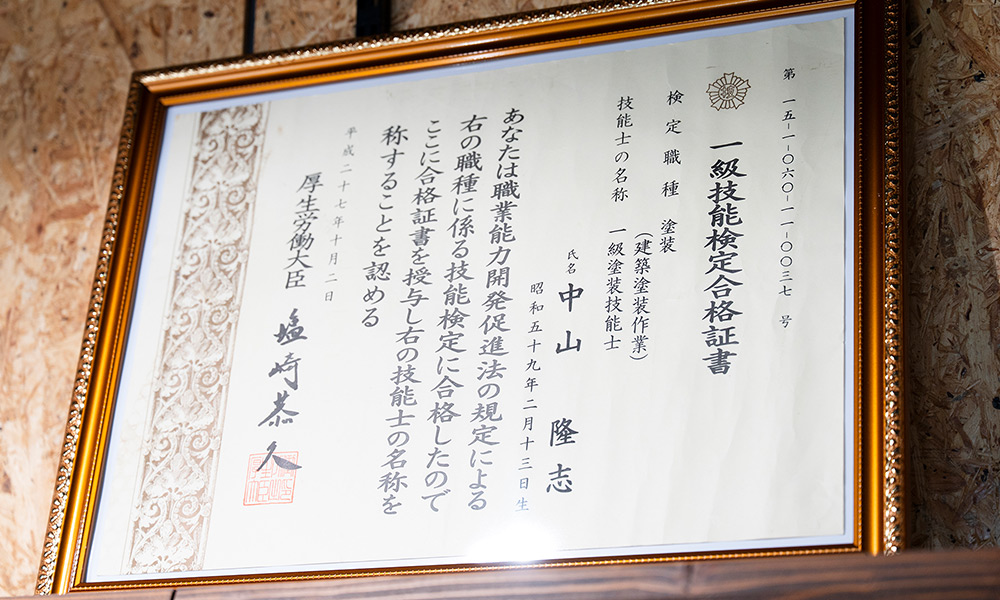 第一五-一-〇六〇-一一-〇〇三七号
一級技能検定合格証書
検定職種 塗装
(建築塗装作業)
技能士の名称 一級塗装技能士
氏名 中山 隆志
昭和五十九年二月十三日生
あなたは職業能力開発促進法の規定による
右の職種に係る技能検定に合格したので
ここに合格証書を授与し右の技能士の名称を
称することを認める
平成二十七年十月二日
厚生労働大臣 塩崎恭久